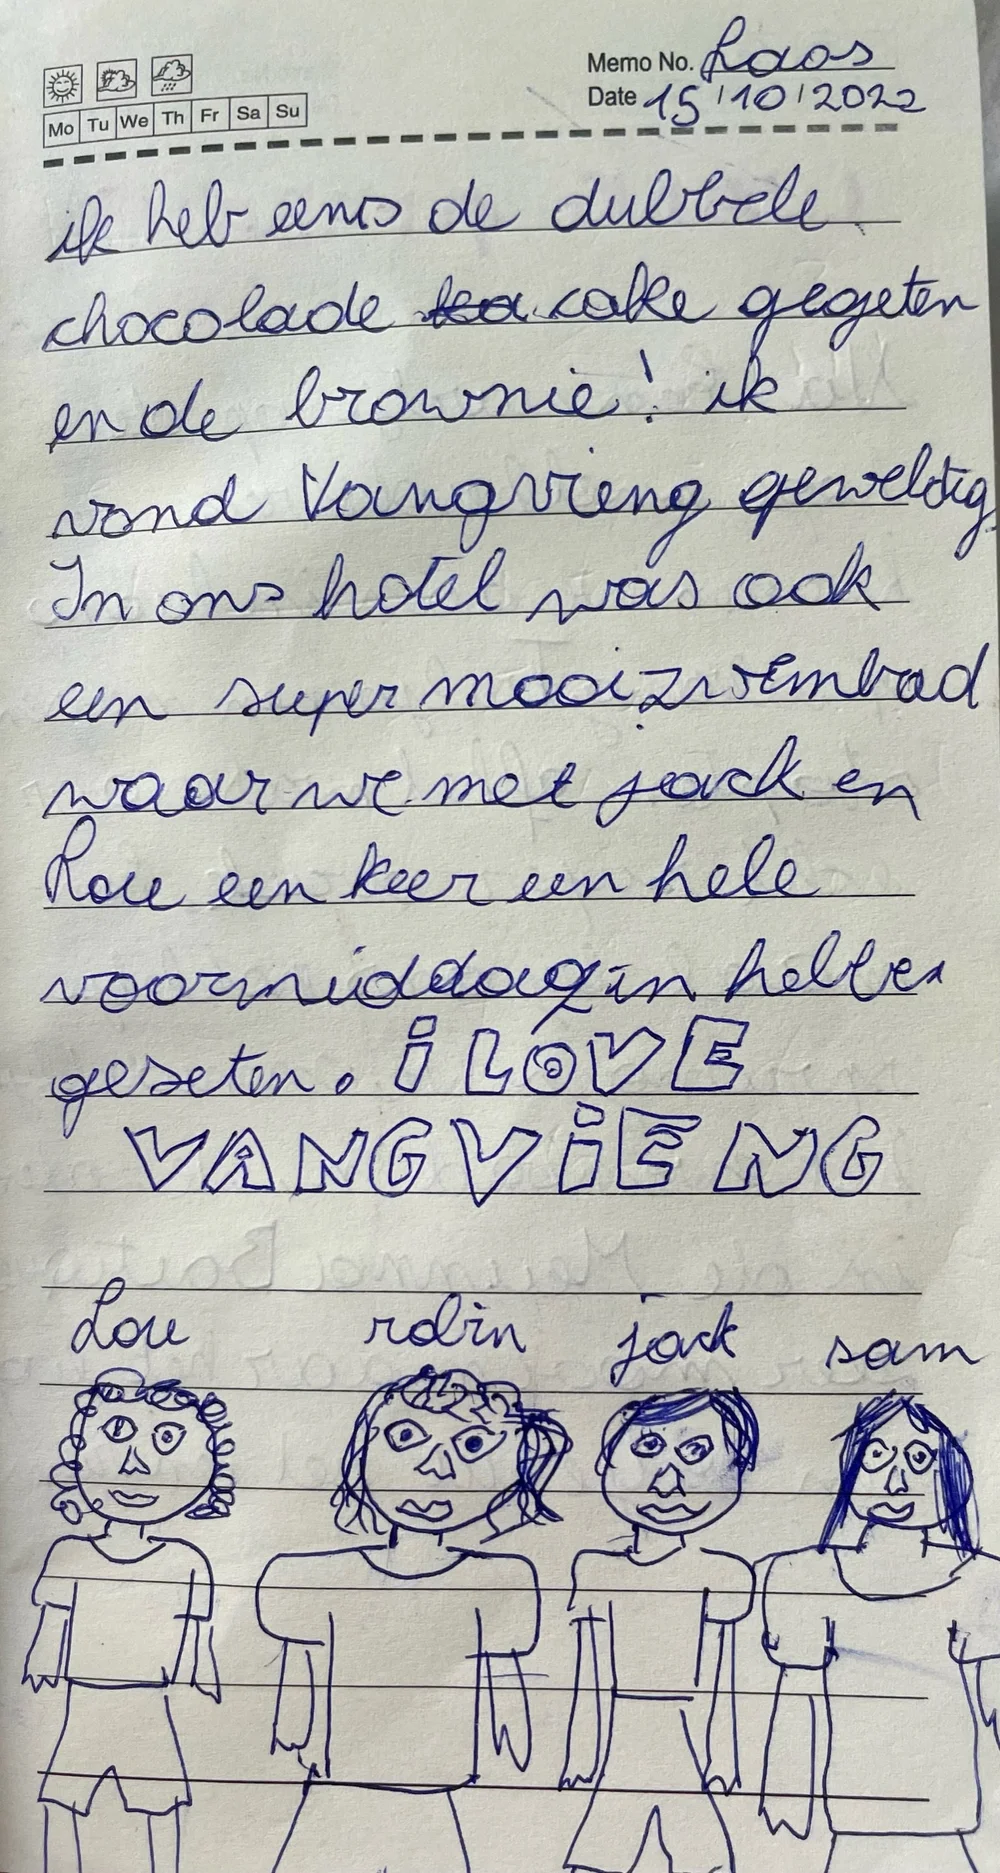 Memo No. Laos
Date 15/10/2022
Mo Tu We Th Fr Sa Su
ik heb eens de dubbele
chocolade ka cake gegeten
en de brownie! ik
vond Vangvieng geweldig
In ons hotel was ook
een super mooi zwembad
waar we met jack en
Lou een keer een hele
voormiddag in hebben
geseten. i LOVE
VANG VIENG
Lou robin jack sam